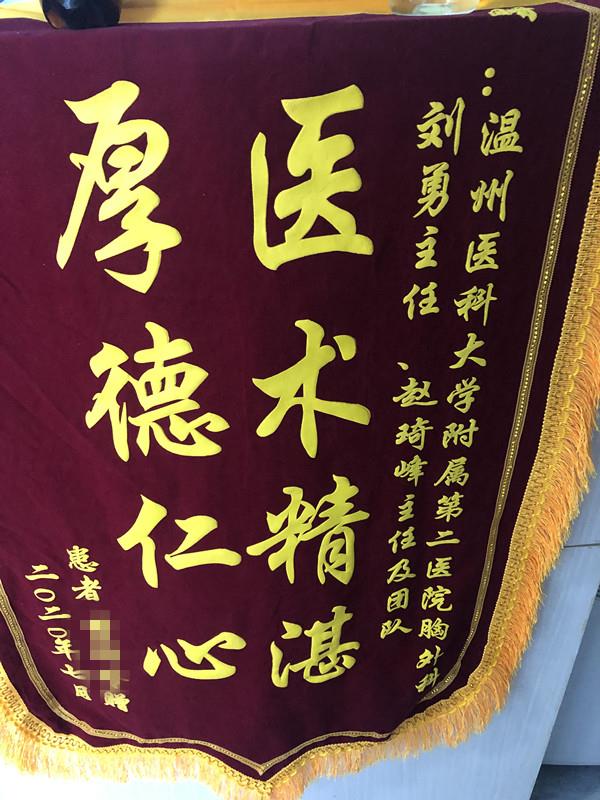 温州医科大学附属第二医院胸外科
刘勇主任、赵琦峰主任及团队：
医术精湛
厚德仁心
患者
赠
二〇二〇年七月